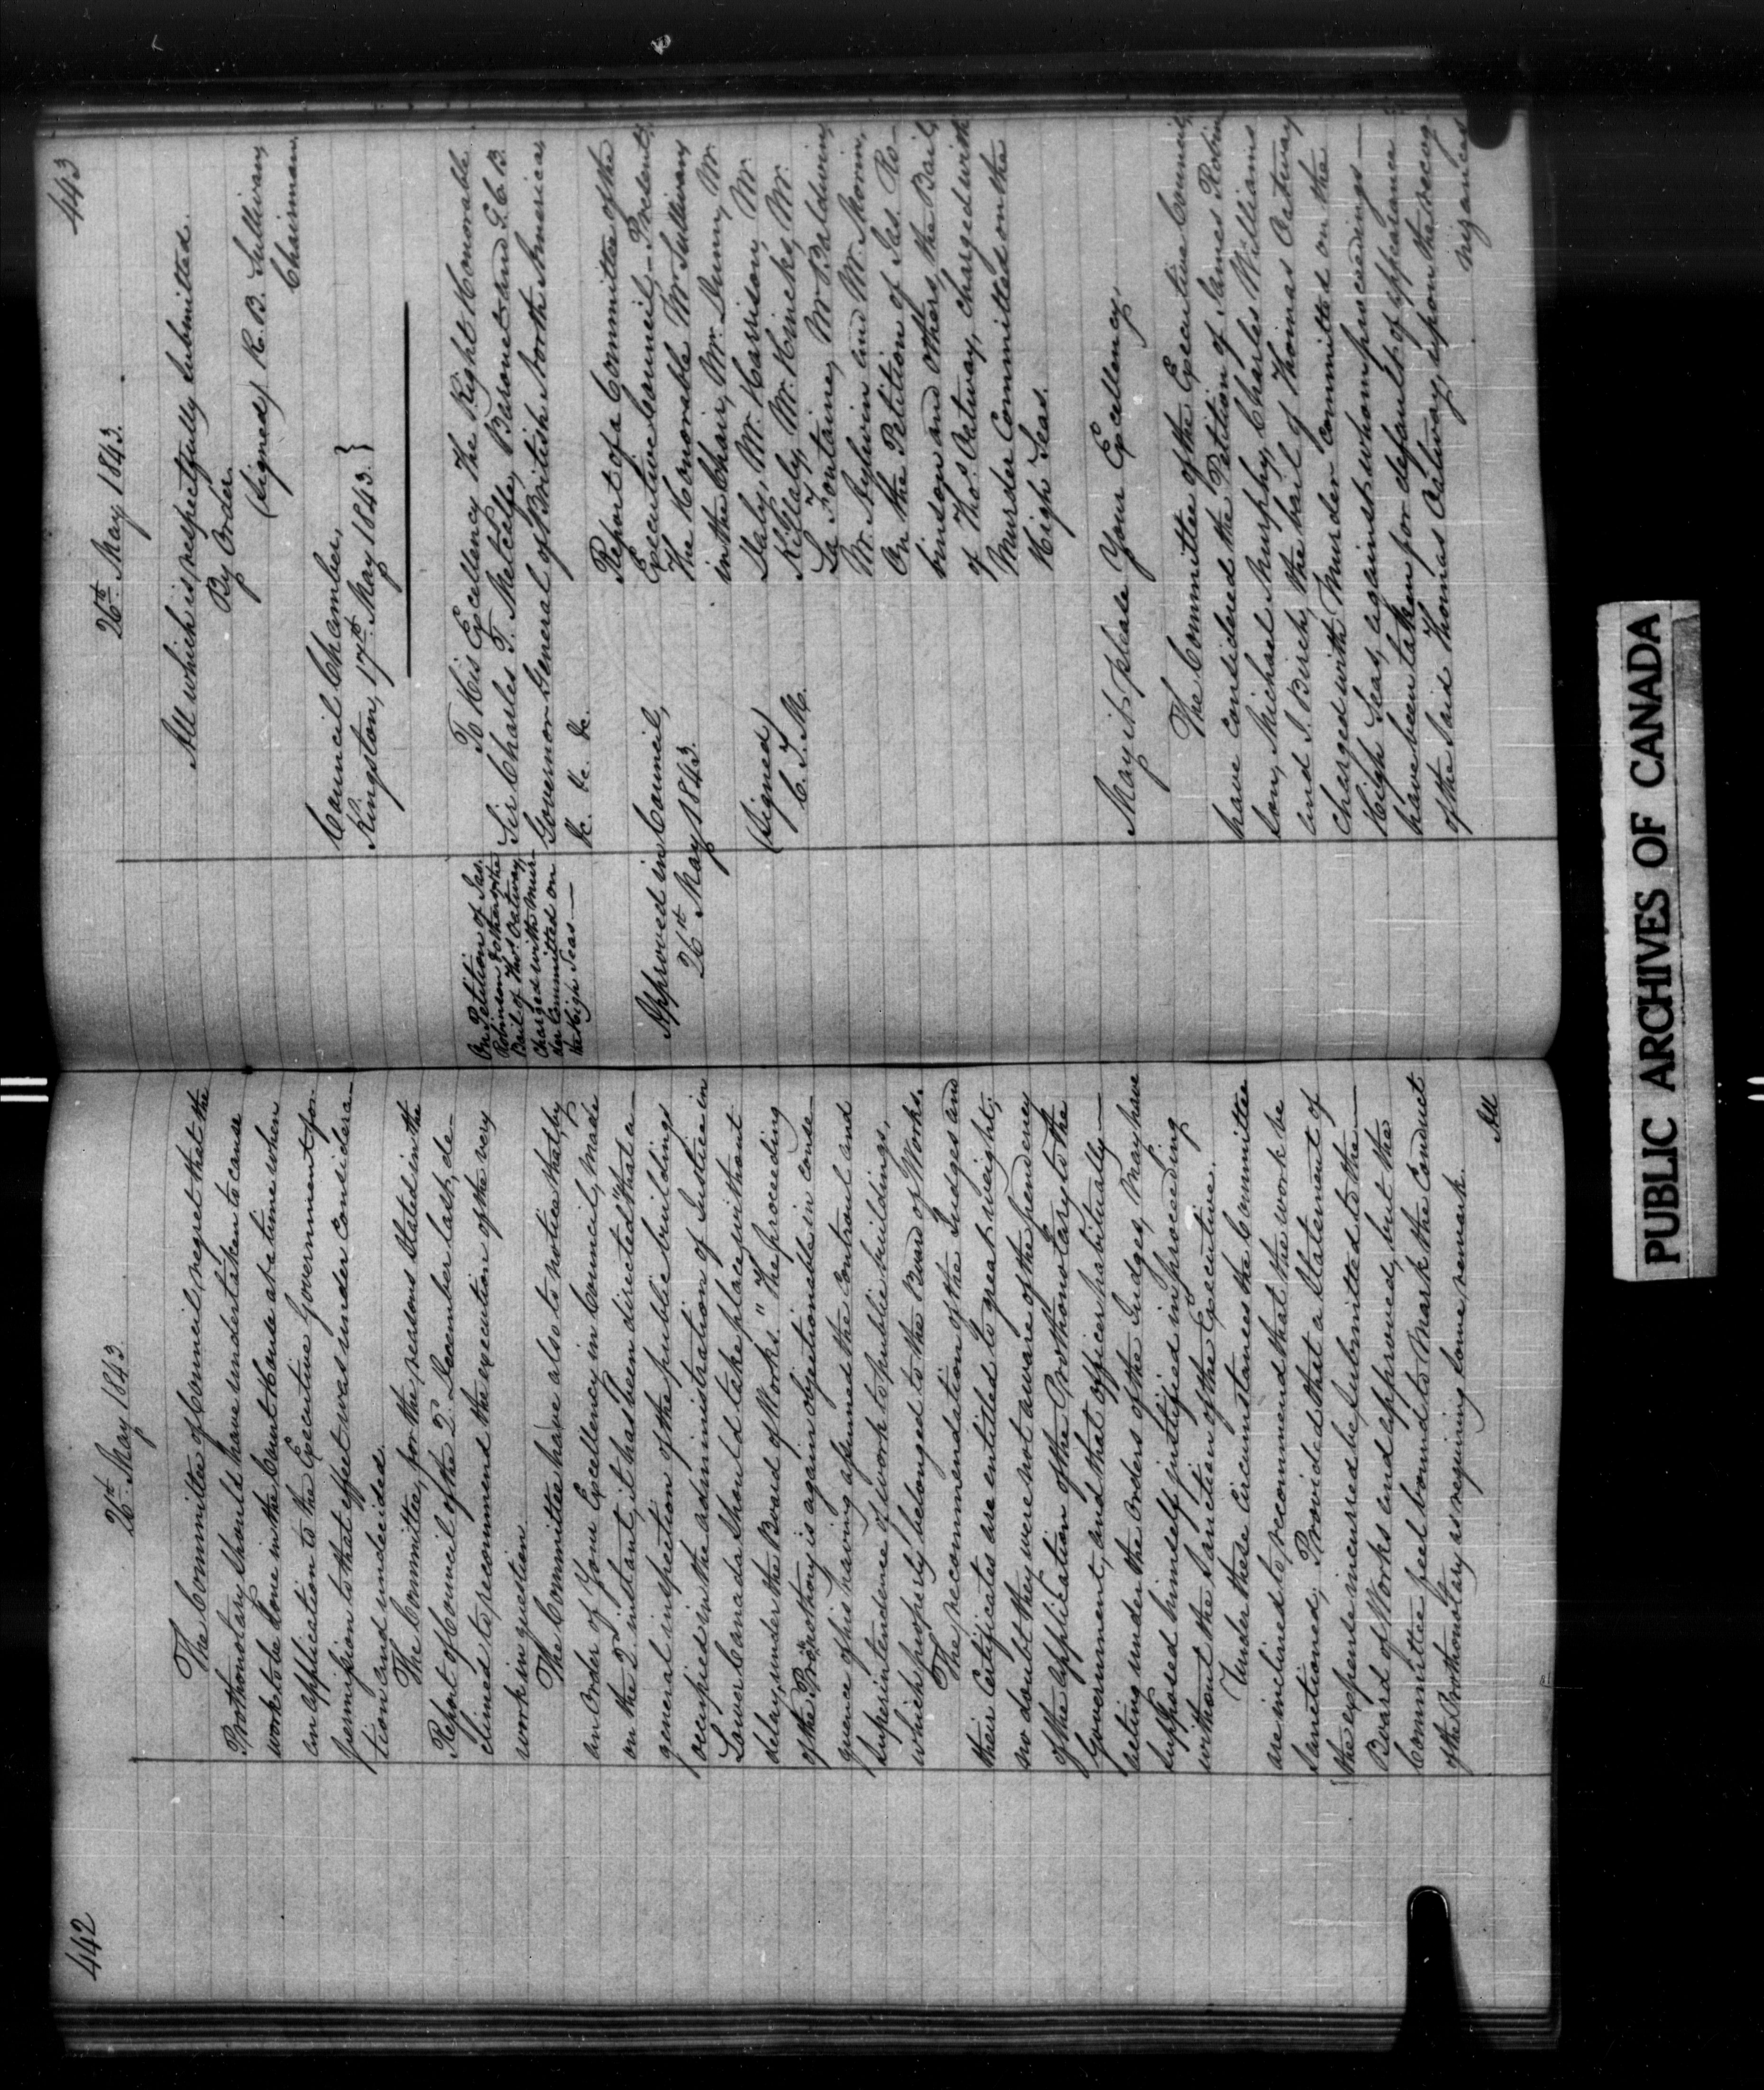 442
26th May 1843.
The Committee of Council, regret that the
Prothonotary should have undertaken to cause
work to be done in the Court House at a time when
an application to the Executive Government for
permission to that effect was under considera-
tion and undecided.
The Committee, for the reasons stated in the
Report of Council of the 2. December last, de-
clined to recommend the execution of the very
work in question.
The Committee have also to notice that, by
an Order of Your Excellency in Council, made
on the 2. instant, it has been directed "that a
general inspection of the public buildings
occupied in the administration of Justice in
Lower Canada should take place without
delay, under the Board of Works." The proceeding
of the Prothonotary is again objectionable in conse-
quence of his having assumed the controul and
superintendence of work to public buildings,
which properly belonged to the Board of Works.
The recommendation of the Judges and
their Certificates are entitled to great weight;
no doubt they were not aware of the pendency
of the application of the Prothonotary to the
Government, and that officer habitually
acting under the orders of the Judges, may have
supposed himself justified in proceeding
without the sanction of the Executive.
Under these circumstances the Committee
are inclined to recommend that the work be
sanctioned; Provided that a Statement of
the expense incurred be submitted to the
Board of Works and approved, but the
Committee feel bound to mark the conduct
of the Prothonotary as requiring some remark.
All
443
26th May 1843.
All which is respectfully submitted.
By Order.
(Signed) R. B. Sullivan,
Chairman.
Council Chamber,
Kingston, 17th May 1843. }
On Petition of Jas.
Robinson & others the
Bail of Thos. Oatway,
Charged with Mur-
der Committed on
the High Seas.—
To His Excellency The Right Honorable
Sir Charles T. Metcalfe, Baronet and G.C.B.
Governor General of British North America,
&c. &c. &c.
Approved in Council,
26th May 1843.
(Signed)
C. T. M.
Report of a Committee of the
Executive Council,—Present;
The Honorable Mr. Sullivan,
in the Chair, Mr. Dunn, Mr.
Daly, Mr. Harrison, Mr.
Killaly, Mr. Hincks, Mr.
La Fontaine, Mr. Baldwin,
Mr. Aylwin and Mr. Morin,
On the Petition of Jas. Ro-
binson and others, the Bail
of Thos. Oatway, charged with
Murder Committed on the
High Seas.
May it please Your Excellency,
The Committee of the Executive Council,
have considered the Petition of James Robin
son, Michael Murphy, Charles Williams
and J. Birch, the bail of Thomas Oatway
charged with Murder committed on the
High Seas, against whom proceedings—
have been taken for default of appearance
of the said Thomas Oatway, upon the recog-
nizances
PUBLIC ARCHIVES OF CANADA